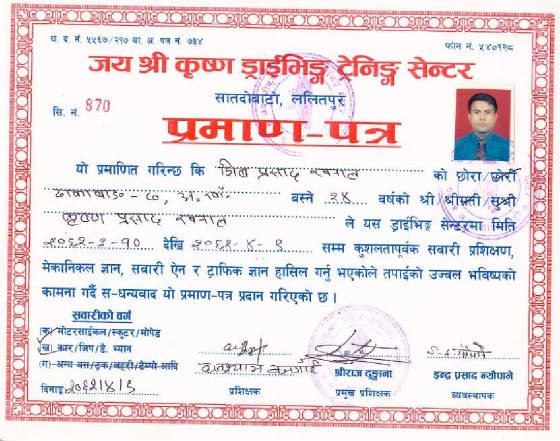 घ. द. नं. ५५६७/२१७ या. अ. पत्र नं. ७६४
फोन नं. ५४०१२८
जय श्री कृष्ण ड्राईभिङ्ग ट्रेनिङ्ग सेन्टर
सातदोबाटो, ललितपुर
सि. नं. 870
प्रमाण-पत्र
यो प्रमाणित गरिन्छ कि प्रसाद खनाल को छोरा/छोरी
बस्ने २४ वर्षको श्री/श्रीमती/सुश्री
कृष्ण प्रसाद खनाल ले यस ड्राईभिङ्ग सेन्टरमा मिति
देखि सम्म कुशलतापूर्वक सवारी प्रशिक्षण,
मेकानिकल ज्ञान, सवारी ऐन र ट्राफिक ज्ञान हासिल गर्नु भएकोले तपाईको उज्वल भविष्यको
कामना गर्दै स-धन्यवाद यो प्रमाण-पत्र प्रदान गरिएको छ ।
सवारीको वर्ग
(क) मोटरसाईकल/स्कुटर/मोपेड
(ख) कार/जिप/डे. भ्यान
(ग) अन्य बस/ट्रक/लहरी/टेम्पो आदि
दिनाङ्क
प्रशिक्षक
श्रीराज दुङ्गाना
प्रमुख प्रशिक्षक
इन्द्र प्रसाद न्यौपाने
व्यवस्थापक